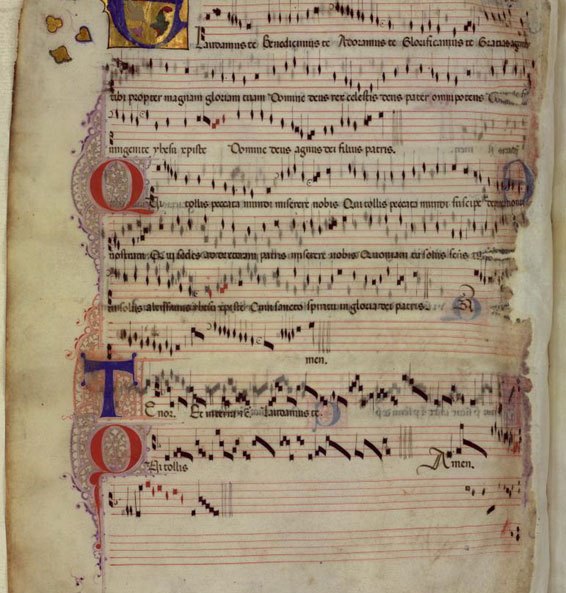 Laudamus te Benedicimus te Adoramus te Glorificamus te Gratias
tibi propter magnam gloriam tuam Domine deus rex celestis deus pater omnipotens
unigenite yhesu xpiste Domine deus agnus dei filius patris.
Qui tollis peccata mundi miserere nobis Qui tollis peccata mundi suscipe
nostram Qui sedes ad dexteram patris miserere nobis Quoniam tu solus
tu solus altissimus yhesu xpiste Cum sancto spiritu in gloria dei patris. A
men.
Tenor. Et in terra Laudamus te.
Qui tollis Amen.